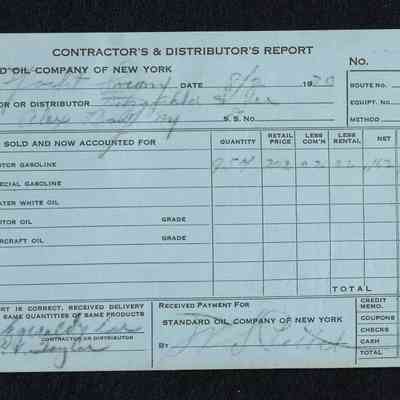 CONTRACTOR'S & DISTRIBUTOR'S REPORT
D OIL COMPANY OF NEW YORK No.
DATE 8/2 1930 ROUTE NO.
OR OR DISTRIBUTOR EQUIPT. NO.
Alex Bay NY S. S. No. METHOD
SOLD AND NOW ACCOUNTED FOR QUANTITY RETAIL PRICE LESS COM'N LESS RENTAL NET
OTOR GASOLINE 954
PECIAL GASOLINE
ATER WHITE OIL
OTOR OIL GRADE
IRCRAFT OIL GRADE
TOTAL
RT IS CORRECT, RECEIVED DELIVERY
SAME QUANTITIES OF SAME PRODUCTS
CONTRACTOR OR DISTRIBUTOR
Taylor
RECEIVED PAYMENT FOR
STANDARD OIL COMPANY OF NEW YORK
BY
CREDIT MEMO.
COUPONS
CHECKS
CASH
TOTAL